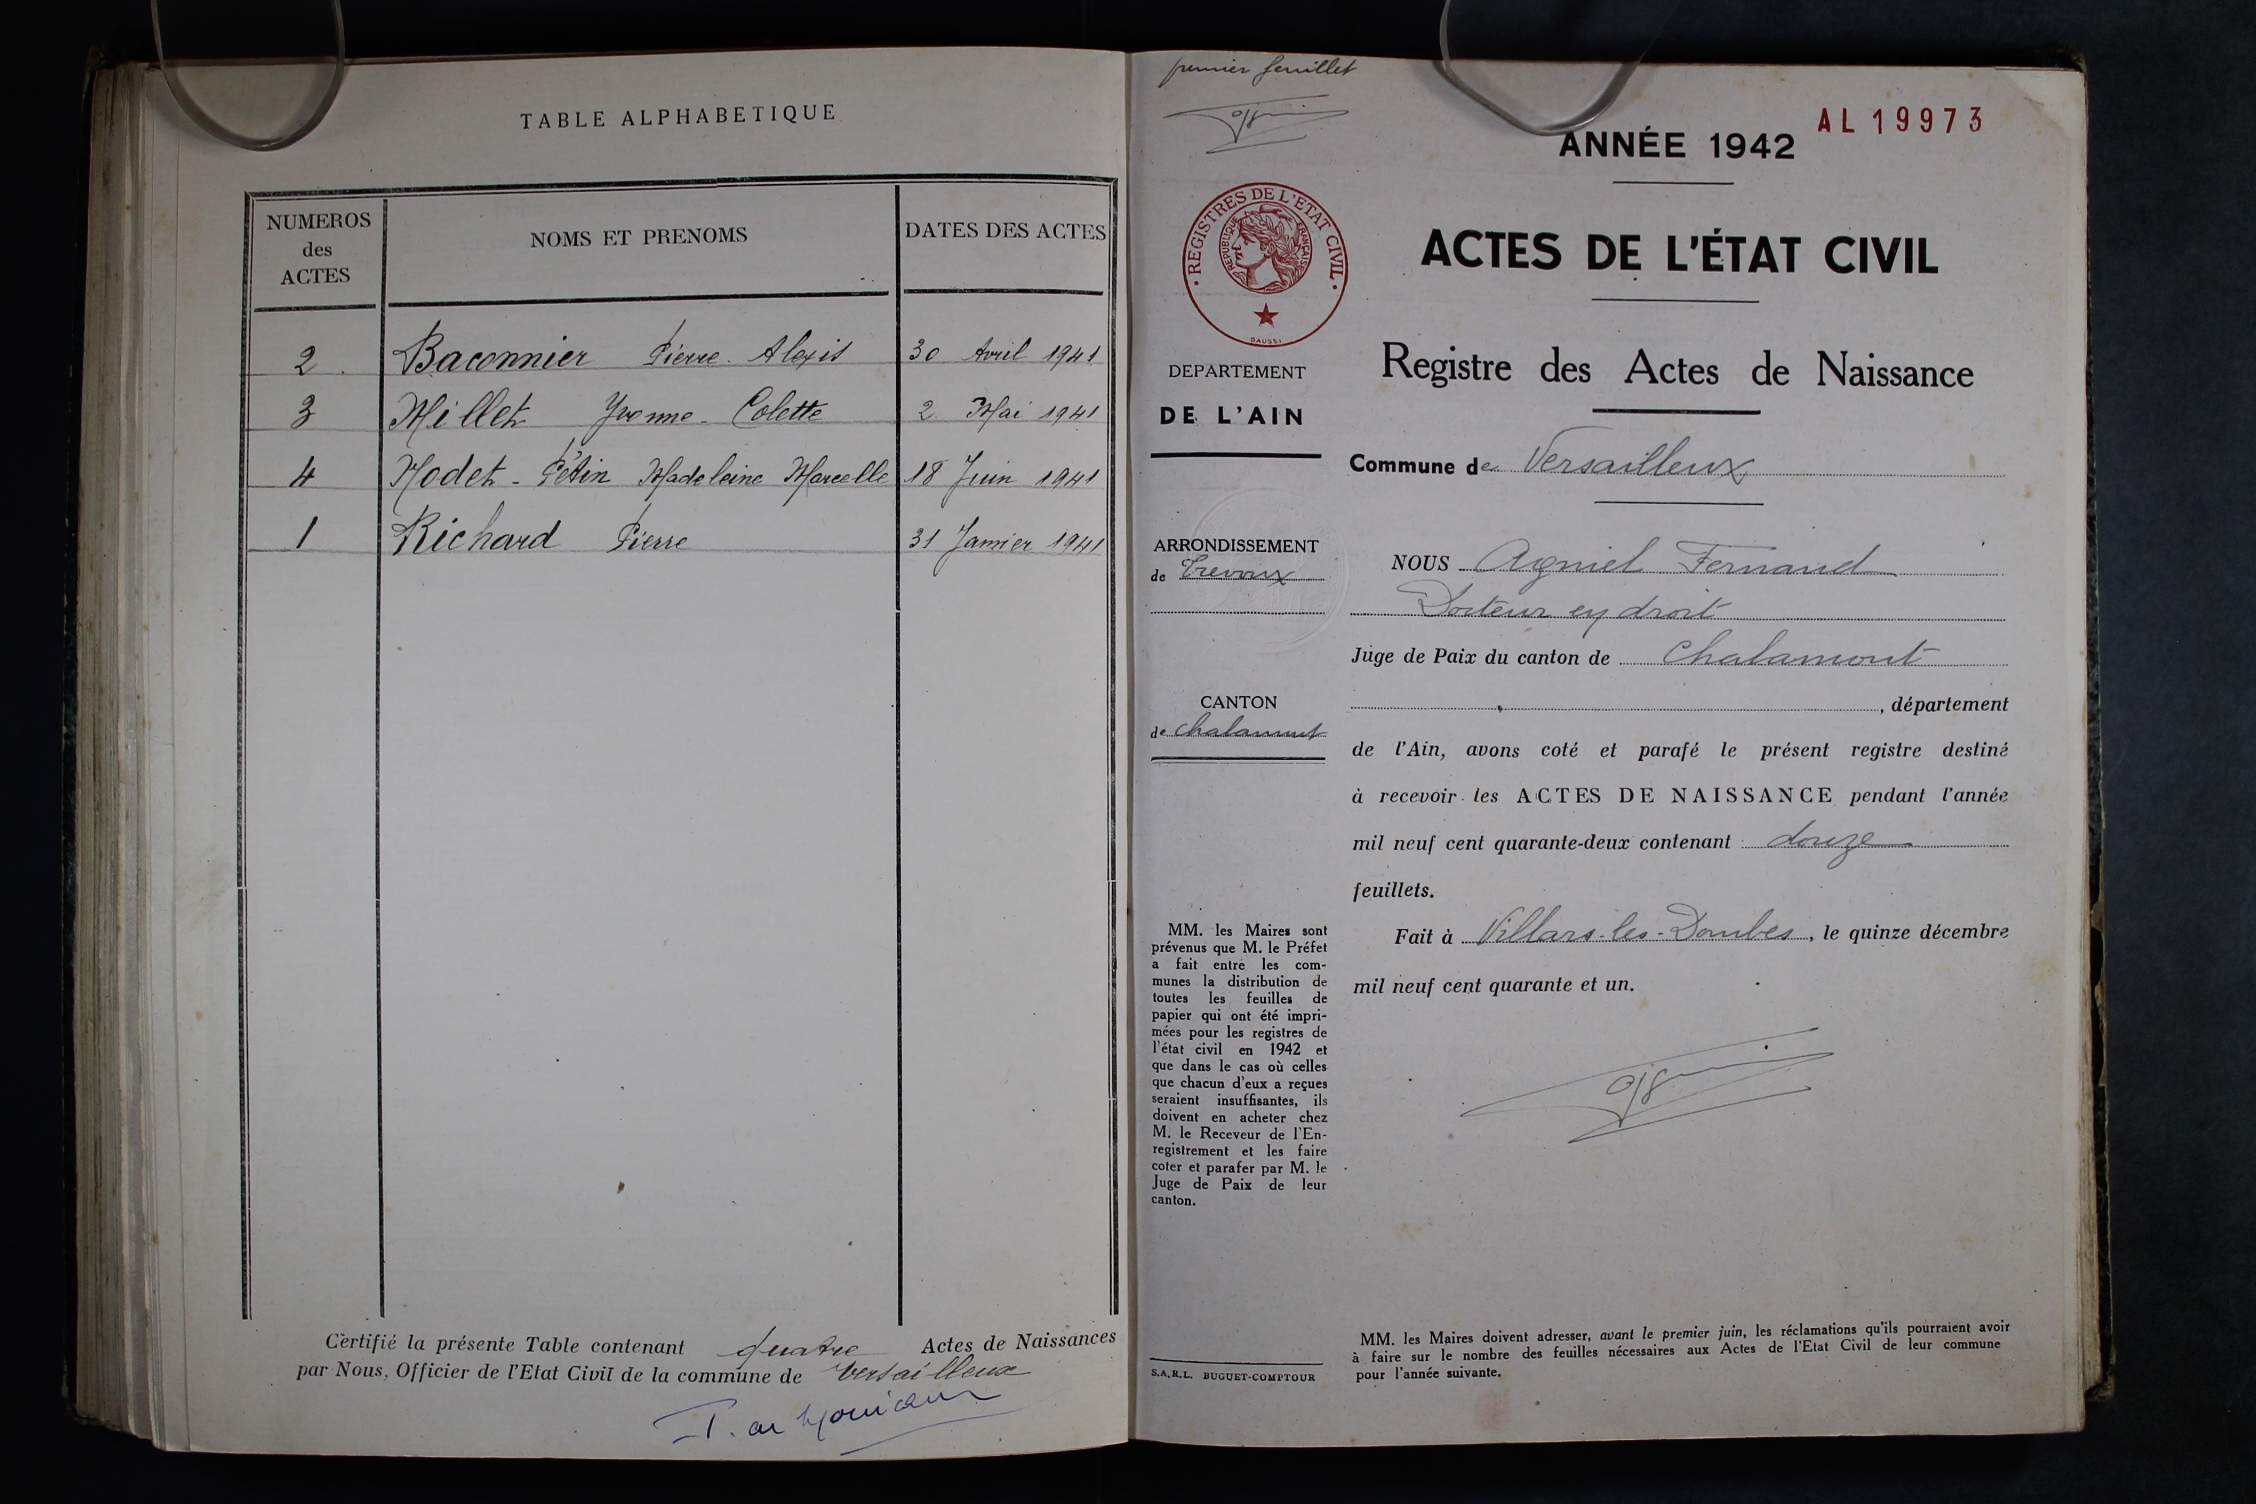 TABLE ALPHABETIQUE
NUMEROS des ACTES
NOMS ET PRENOMS
DATES DES ACTES
2 Baconnier Pierre Alexis 30 Avril 1941
3 Millet Yvonne Colette 2 Mai 1941
4 Modet-Pétin Madeleine Marcelle 18 Juin 1941
1 Richard Pierre 31 Janvier 1941
Certifié la présente Table contenant quatre Actes de Naissances
par Nous, Officier de l'Etat Civil de la commune de Versailleux
premier feuillet
REGISTRES DE L'ETAT CIVIL
REPUBLIQUE FRANÇAISE
DAUSSI
DEPARTEMENT
DE L'AIN
ARRONDISSEMENT
de Trevoux
CANTON
de Chalamont
MM. les Maires sont
prévenus que M. le Préfet
a fait entre les com-
munes la distribution de
toutes les feuilles de
papier qui ont été impri-
mées pour les registres de
l'état civil en 1942 et
que dans le cas où celles
que chacun d'eux a reçues
seraient insuffisantes, ils
doivent en acheter chez
M. le Receveur de l'En-
registrement et les faire
coter et parafer par M. le
Juge de Paix de leur
canton.
S.A.R.L. BUGUET-COMPTOUR
AL 19973
ANNÉE 1942
ACTES DE L'ÉTAT CIVIL
Registre des Actes de Naissance
Commune de Versailleux
NOUS Agniel Fernand
Docteur en droit
Juge de Paix du canton de Chalamont
, département
de l'Ain, avons coté et parafé le présent registre destiné
à recevoir les ACTES DE NAISSANCE pendant l'année
mil neuf cent quarante-deux contenant douze
feuillets.
Fait à Villars-les-Dombes, le quinze décembre
mil neuf cent quarante et un.
MM. les Maires doivent adresser, avant le premier juin, les réclamations qu'ils pourraient avoir
à faire sur le nombre des feuilles nécessaires aux Actes de l'Etat Civil de leur commune
pour l'année suivante.